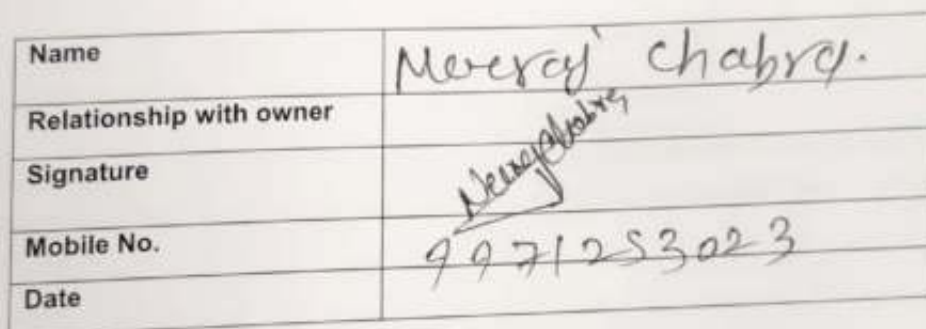 Name Neeraj Chabra.
Relationship with owner
Signature Neeraj Chabra
Mobile No. 9971253023
Date